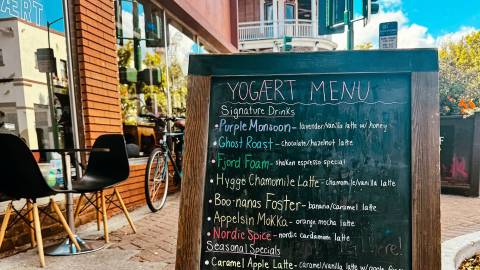 ÆRT
YOGÆRT MENU
Signature Drinks
• Purple Monsoon - lavender/vanilla latte w/ honey
• Ghost Roast - chocolate/hazelnut latte
• Fjord Foam - shaken espresso special
• Hygge Chamomile Latte - chamomile/vanilla latte
• Boo-nanas Foster - banana/caramel latte
• Appelsin Mokka - orange mocha latte
• Nordic Spice - nordic cardamom latte
Seasonal Specials
• Caramel Apple Latte - caramel/vanilla latte w/ apple